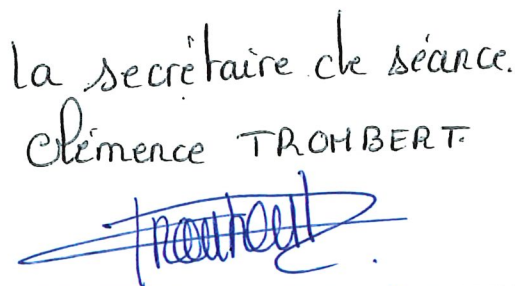 la secrétaire de séance.
Clémence TROMBERT.